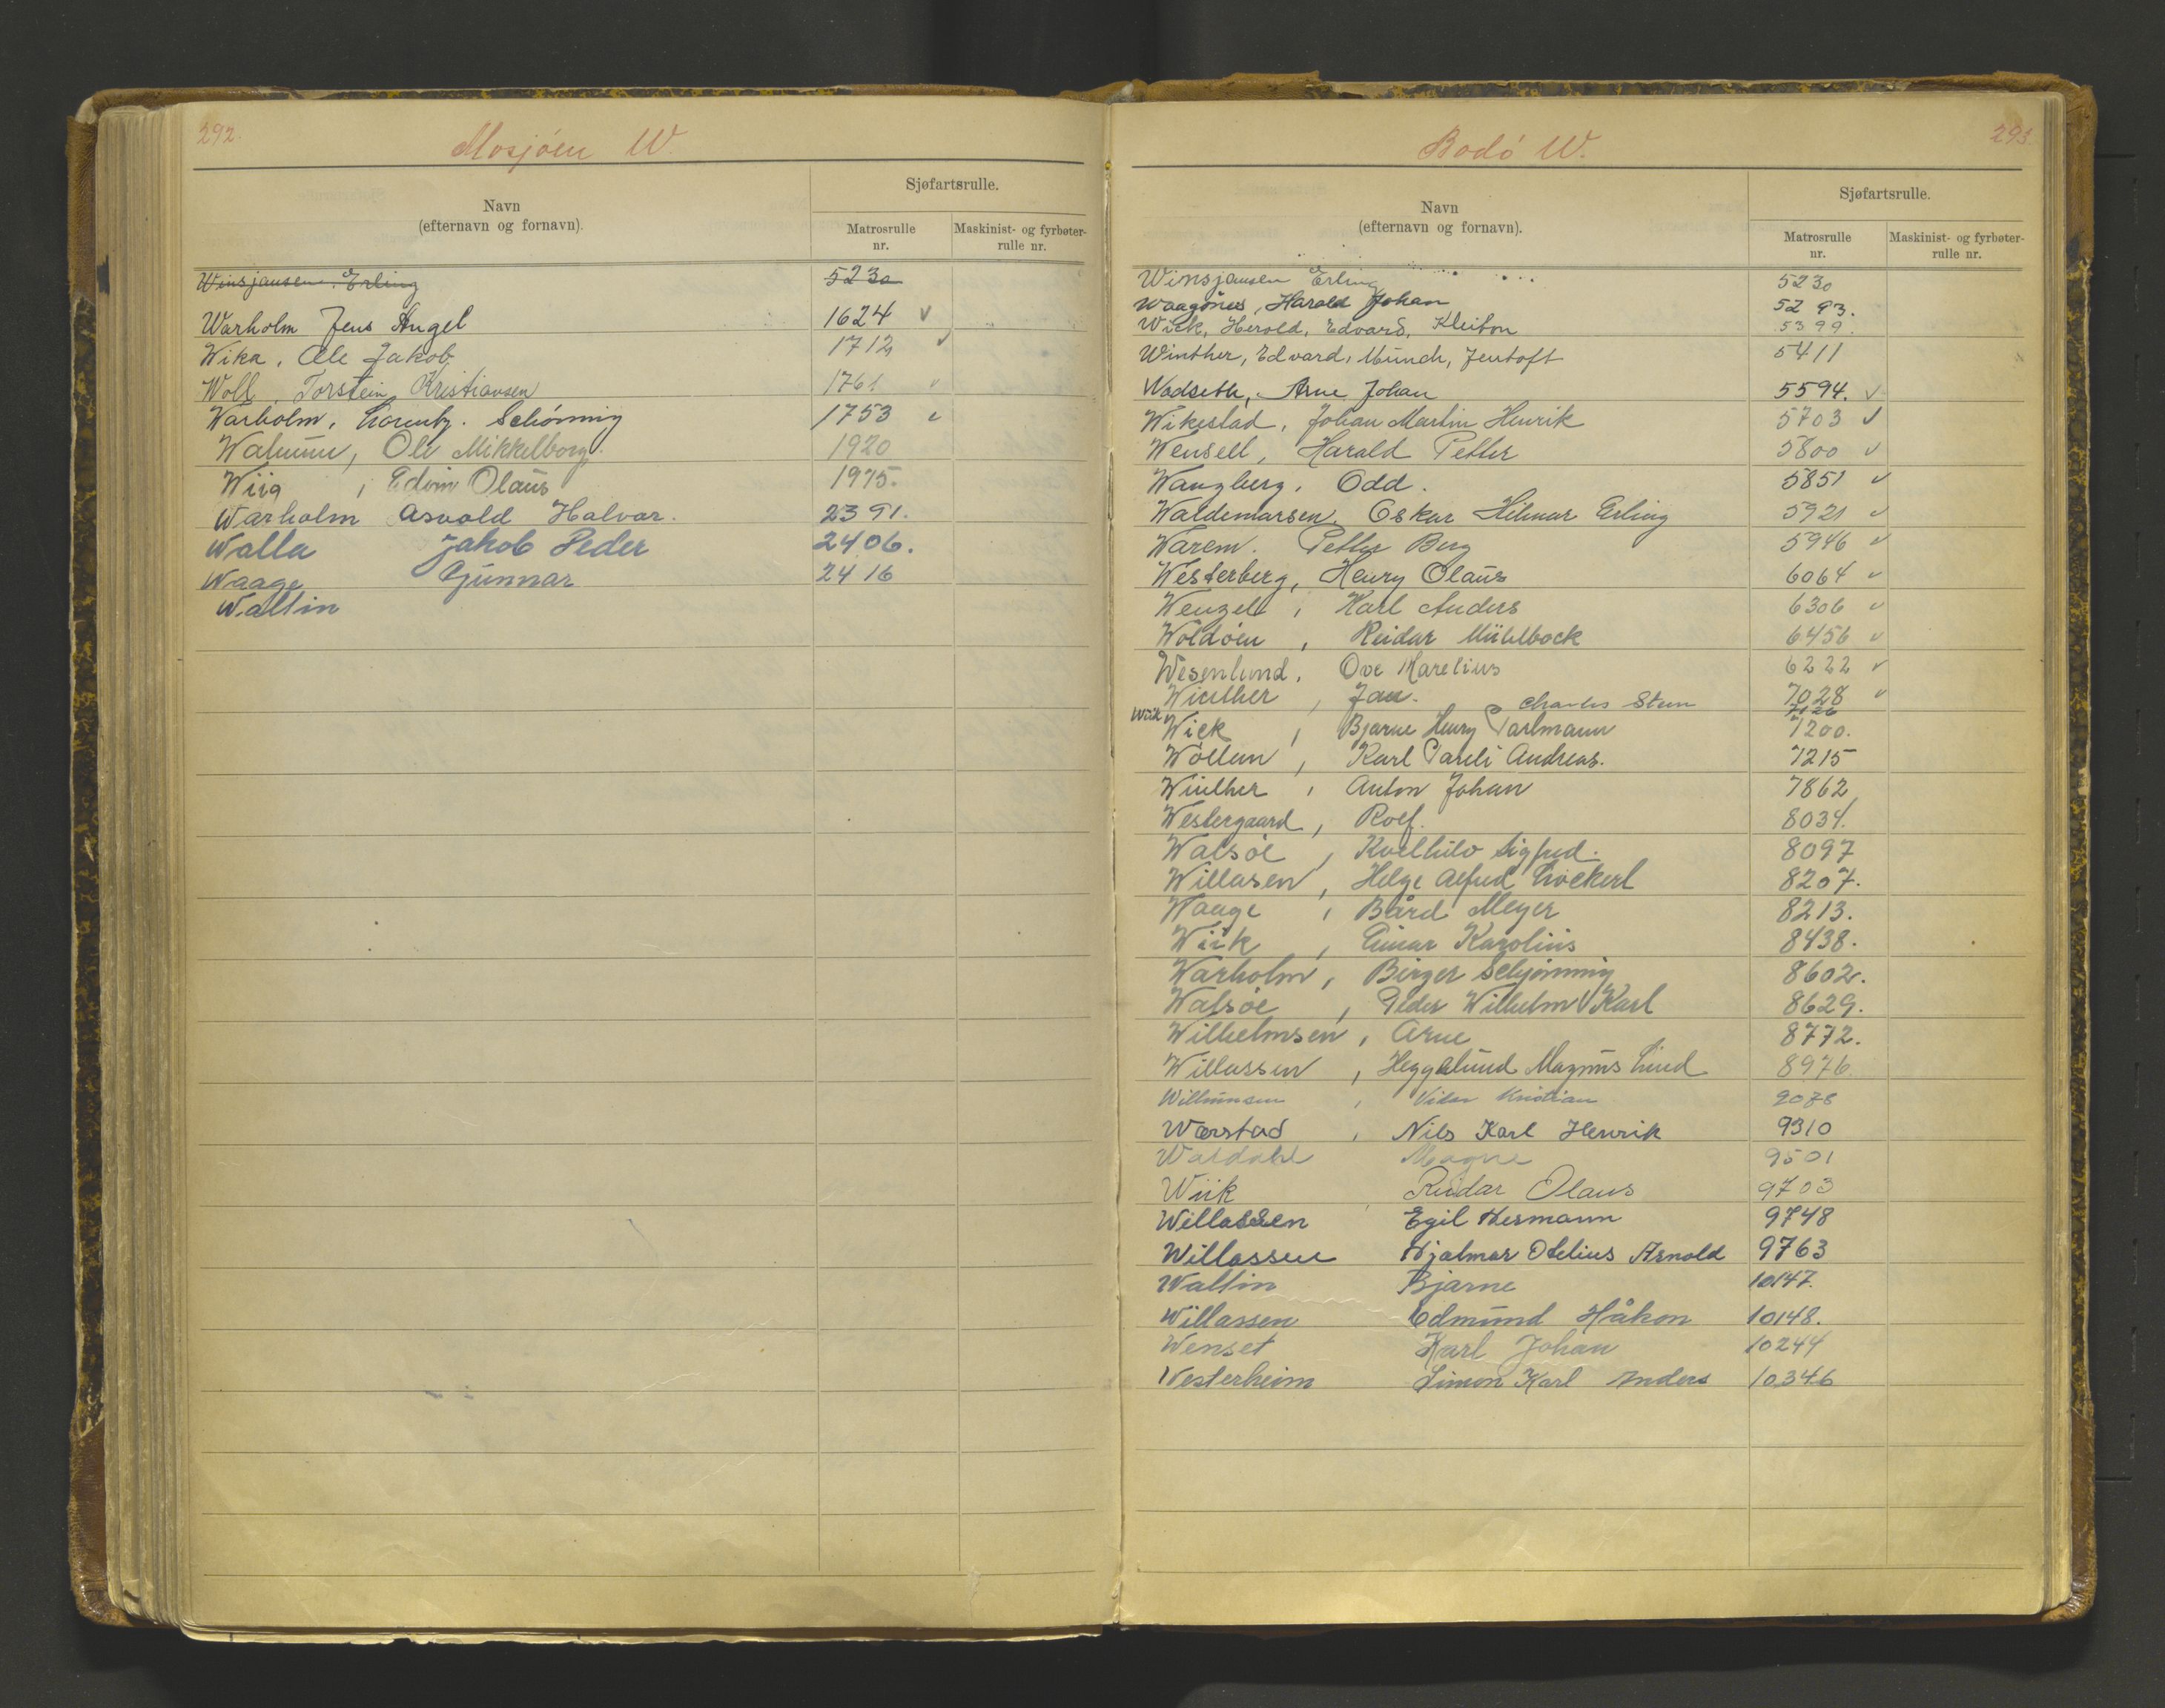 292.
Mosjöen W.
Navn
(efternavn og fornavn).
Sjøfartsrulle.
Matrosrulle
nr.
Maskinist- og fyrbøter-
rulle nr.
Winsjansen. Erling 5230
Warholm Jens Angel 1624 ✓
Wika, Ole Jakob 1712 ✓
Woll, Torstein Kristiansen 1761 ✓
Warholm, Lorentz. Schönnig 1753 ✓
Ole Mikkelborg. 1920
Wiig, Edvin Olaus 1975.
Warholm Asvald Halvar. 2391.
Walla Jakob Peder 2406.
Waage Gunnar 2416
Waltin
293.
Bodö W.
Navn
(efternavn og fornavn).
Sjøfartsrulle.
Matrosrulle
nr.
Maskinist- og fyrbøter-
rulle nr.
Winsjansen Erling 5230
Waagönes, Harald Johan 5293.
Wick, Herold, Edvard, Kleiton 5399.
Winther, Edvard, Münch, Jentoft 5411
Wadseth, Arne Johan 5594. ✓
Wikestad, Johan Martin Henrik 5703 ✓
Wensell, Harald Petter 5800 ✓
Wangberg, Odd. 5851 ✓
Waldemarsen. Oskar Hilmar Erling 5921 ✓
Warem. Petter Berg 5946 ✓
Westerberg, Henry Olaus 6064 ✓
Wenzell, Karl Anders 6306 ✓
Woldöen, Reidar Mühlbock 6456 ✓
Wesenlund, Ove Marelius 6222 ✓
Winther, Jan. 7028 ✓
Wiik Charles Steen 7126
Wick, Bjarne Henry Parlmann 7200.
Wollun, Karl Pareli Andreas. 7215
Winther, Anton Johan 7862
Westergaard, Rolf. 8034.
Walsöe, Sigfred. 8097
Willasen, Helge Alfred Lockert 8207.
Waage, Bård Meyer 8213.
Wiik, Einar Karolius 8438.
Warholm, Birger Schjönning 8602.
Walsöe, Peder Wilhelm Karl 8629.
Wilhelmsen, Arne 8772.
Willassen, Hegglund Magnus Lind 8976.
Willumsen, Vidar Kristian 9078
Wærstad, Nils Karl Henrik 9310
Waldahl Magne 9501
Wiik, Reidar Olaus 9703
Willassen Egil Hermann 9748
Willassen Hjalmar Otelius Arnold 9763
Waltin Bjarne 10147.
Willassen Edmund Håkon 10148.
Wenset Karl Johan 10244
Westerheim Simon Karl Anders 10346